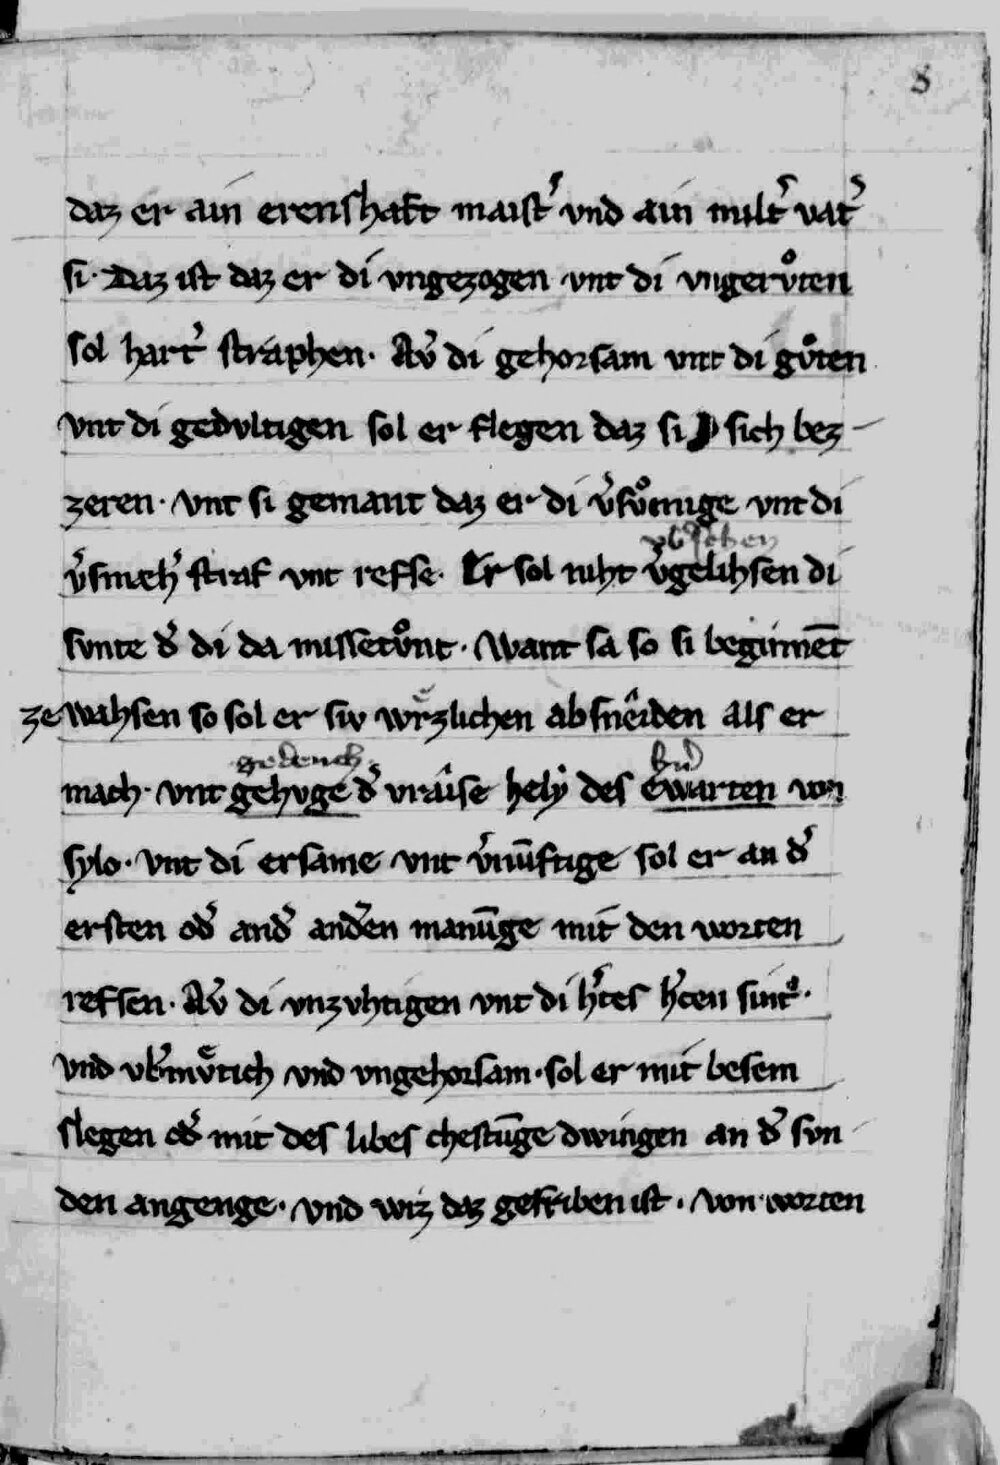 8
daz er ain erenshaft maist᾽ vnd ain milt᾽ vat᾽
si · Daz ist daz er di vngezogen vnt di vngervͦten
sol hart᾽ straphen · Av᾽ di gehorsam vnt di gvͦten
vnt di gedvltigen sol er flegen daz si sich bez-
zeren · vnt si gemant daz er di v᾽svͦmige vnt di
vb᾽sehen
v᾽smæh᾽ straf vnt refse · Er sol niht v᾽gelihsen di
svnte d᾽ di da missetvͦnt · want sa so si beginnēt
ze wahsen so sol er siv wrͤzlichen absnêiden als er
gedench
mach · vnt gehvge d᾽ vraîse hely des ewarten von
sylo · vnt di ersame vnt v᾽nūftige sol er an d᾽
ersten od᾽ and᾽ and᾽en manūge mit den worten
refsen · Av᾽ di vnzvhtigen vnt di h᾽tes h᾽cen sint ·
vnd vb᾽mvͤtich vnd vngehorsam · sol er mit besem
slegen od᾽ mit des libes chestūge dwingen an d᾽ svn-
den angenge · vnd wiz daz geskriben ist · von worten